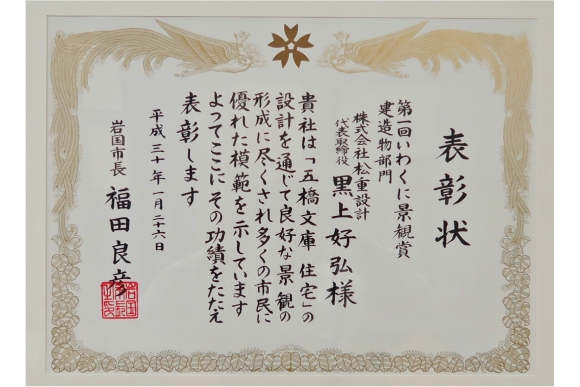 表彰状
第一回いわくに景観賞
建造物部門
株式会社松重設計
代表取締役 黒上好弘様
貴社は「五橋文庫 住宅」の
設計を通じて良好な景観の
形成に尽くされ多くの市民に
優れた模範を示しています
よってここにその功績をたたえ
表彰します
平成三十年一月二十六日
岩国市長 福田良彦